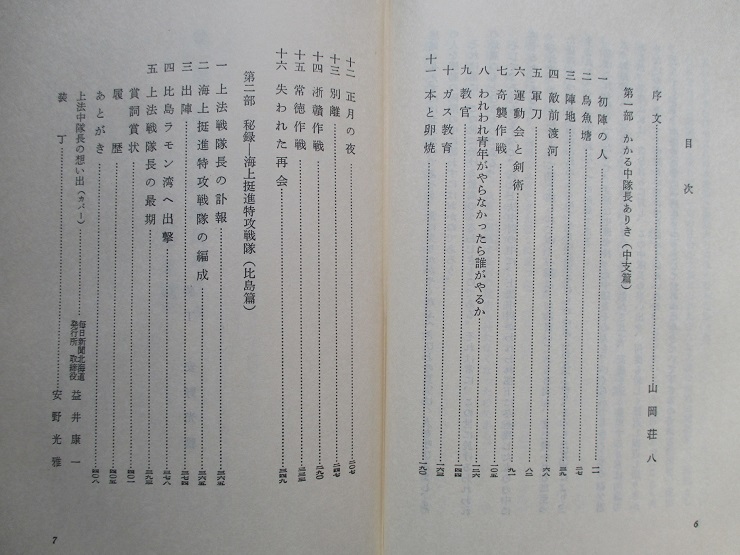 目次
序文 山岡荘八
第一部 かかる中隊長ありき(中支篇)
一 初陣の人 一一
二 烏魚塘 二七
三 陣地 三九
四 敵前渡河 六八
五 軍刀 八二
六 運動会と剣術 九一
七 奇襲作戦 一〇五
八 われわれ青年がやらなかったら誰がやるか 一二六
九 教官 一四四
十 ガス教育 一六三
十一 本と卵焼 一九〇
6
十二 正月の夜 二〇七
十三 別離 二四七
十四 浙贛作戦 二九〇
十五 常徳作戦
十六 失われた再会 三四九
第二部 秘録―海上挺進特攻戦隊(比島篇)
一 上法戦隊長の訃報 三六五
二 海上挺進特攻戦隊の編成 三六五
三 出陣 三七四
四 比島ラモン湾へ出撃 三七八
五 上法戦隊長の最期 三九三
賞詞賞状 四〇一
履歴 四〇五
あとがき 四〇八
上法中隊長の想い出(カバー) 毎日新聞北海道発行所 取締役 益井康一
装丁 安野光雅
7